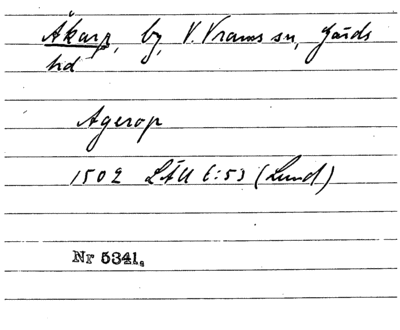 Åkarp, by, V. Vrams sn, Gärds
hd
Agerop
1502 LÄU 6:53 (Lund)
Nr 5341.